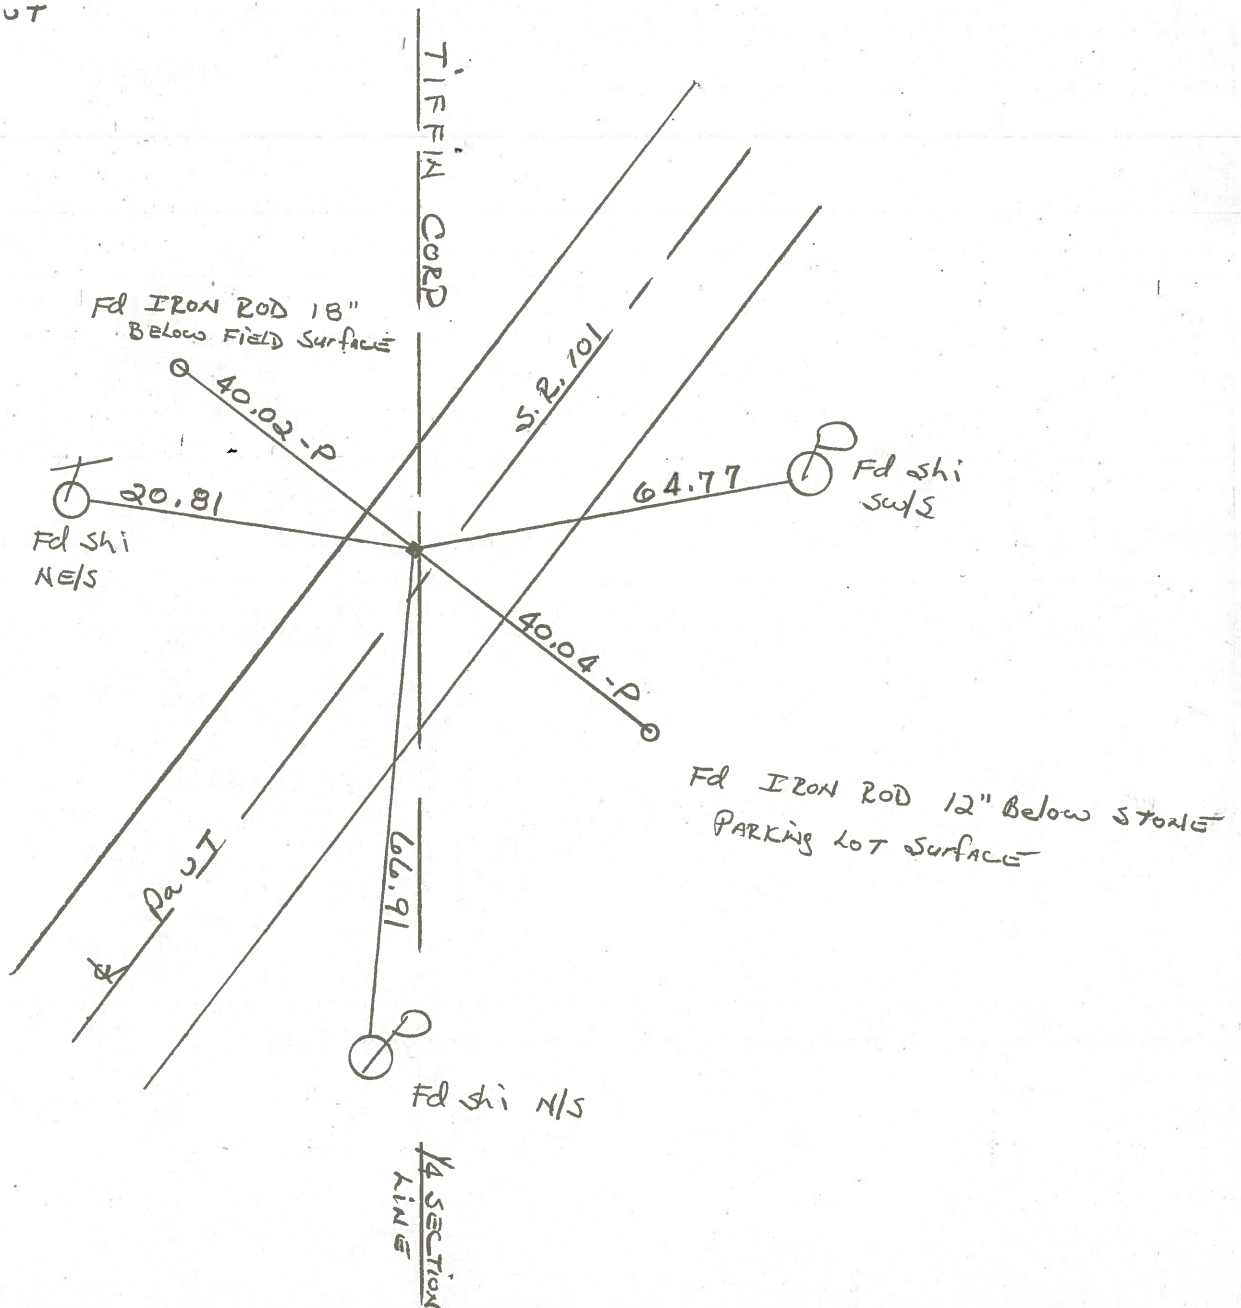 UT
TIFFIN CORP
Fd IRON ROD 18"
BELOW FIELD SurfACE
40.02-P
S.R. 101
20.81
64.77
Fd shi
SW/S
Fd shi
NE/S
40.04-P
Fd IRON ROD 12" Below STONE
PARKing LOT SurfACE
PavT
66.91
Fd shi N/S
1/4 SECTION
LINE